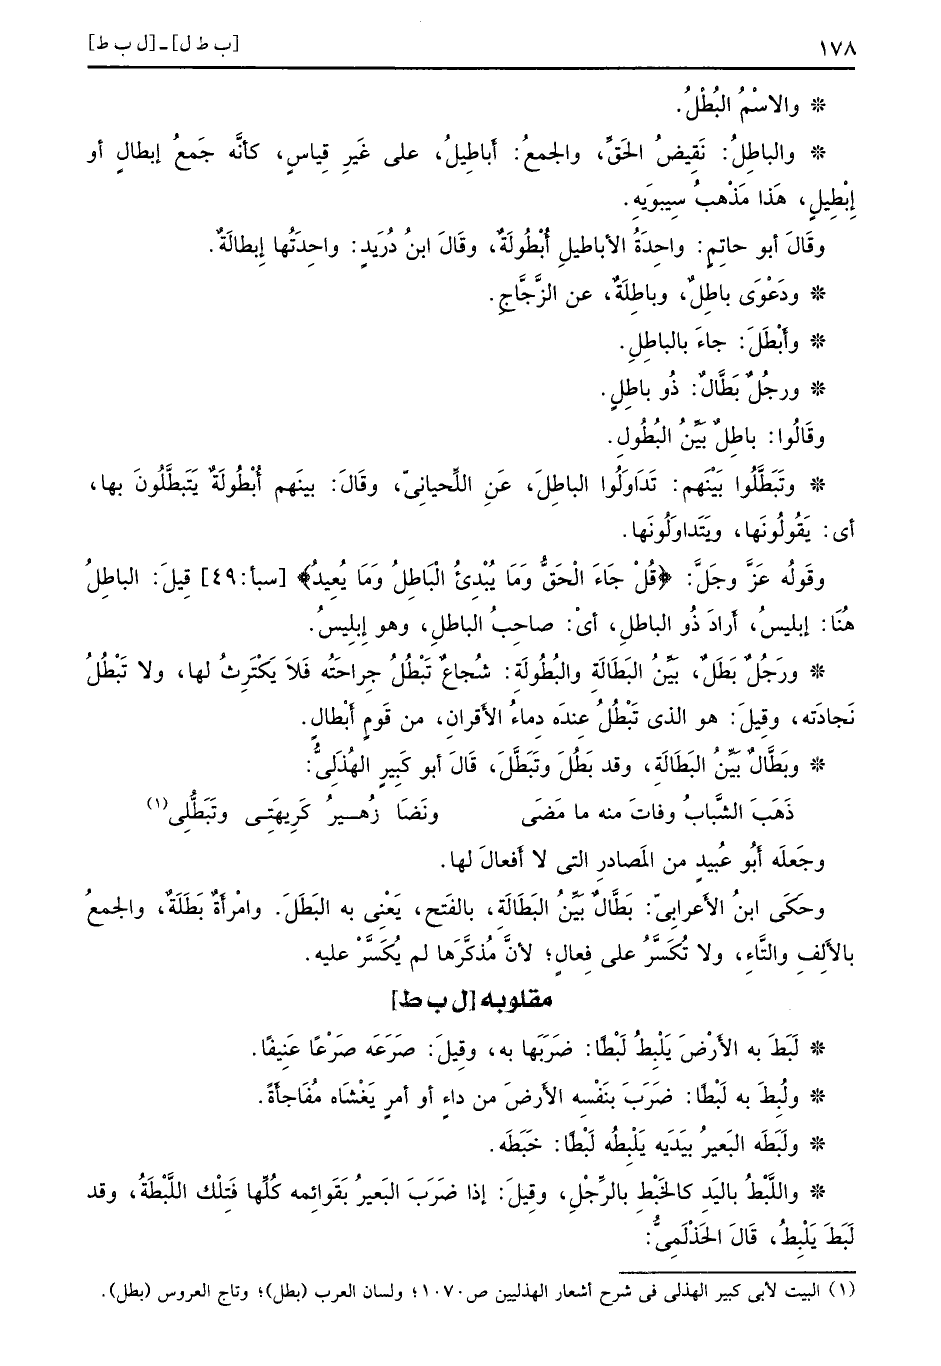 ١٧٨ [ب ط ل] - [ل ب ط]
* والاسْمُ البُطْلُ.
* والباطِلُ: نَقِيضُ الحَقِّ، والجمعُ: أباطِيلُ، على غَيرِ قِياسٍ، كأنَّه جَمعُ إبطالٍ أو
إبْطِيلٍ، هَذا مَذْهبُ سيبوَيهِ.
وقَالَ أبو حاتِمٍ: واحِدَةُ الأباطيلِ أُبْطُولَةٌ، وقَالَ ابنُ دُرَيدٍ: واحِدَتُها إبطالَةٌ.
* ودَعْوَى باطِلٌ، وباطِلَةٌ، عن الزَّجَّاجِ.
* وأبْطَلَ: جاءَ بالباطِلِ.
* ورجُلٌ بَطَّالٌ: ذُو باطِلٍ.
وقَالُوا: باطِلٌ بَيِّنُ البُطُولِ.
* وتَبَطَّلُوا بَيْنَهم: تَدَاوَلُوا الباطِلَ، عَنِ اللِّحيانىّ، وقَالَ: بينَهم أُبْطُولَةٌ يَتَبطَّلُونَ بها،
أى: يَقُولُونَها، ويَتَداوَلُونَها.
وقَولُه عَزَّ وجَلَّ: ﴿قُلْ جَاءَ الْحَقُّ وَمَا يُبْدِئُ الْبَاطِلُ وَمَا يُعِيدُ﴾ [سبأ:٤٩] قيلَ: الباطلُ
هُنَا: إبليسُ، أرادَ ذُو الباطلِ، أىْ: صاحبُ الباطلِ، وهو إبليسُ.
* ورَجُلٌ بَطَلٌ، بَيِّنُ البَطَالَةِ والبُطُولَةِ: شُجاعٌ تَبْطُلُ جِراحَتُه فَلاَ يَكْتَرِثُ لها، ولا تَبْطُلُ
نَجادَته، وقِيلَ: هو الذى تَبْطُلُ عندَه دماءُ الأقرانِ، من قَومٍ أبْطالٍ.
* وبَطَّالٌ بَيِّنُ البَطَالَةِ، وقد بَطُلَ وتَبَطَّلَ، قَالَ أبو كَبِيرٍ الهُذَلىُّ:
ذَهَبَ الشَّبابُ وفاتَ منه ما مَضَى ونَضَا زُهــيرُ كَرِيهَتِـى وتَبَطُّلِى(١)
وجَعلَه أبُو عُبيدٍ من المَصادرِ التى لا أفعالَ لها.
وحكَى ابنُ الأعرابىّ: بَطَّالٌ بَيِّنُ البَطَالَةِ، بالفَتحِ، يَعْنِى به البَطَلَ. وامْرأةٌ بَطَلَةٌ، والجمعُ
بالألِفِ والتَّاءِ، ولا تُكَسَّرُ على فِعالٍ؛ لأنَّ مُذكَّرَها لم يُكَسَّرْ عليه.
مقلوبه [ل ب ط]
* لَبَطَ به الأرْضَ يَلْبِطُ لَبْطًا: ضَرَبَها به، وقيلَ: صَرَعَه صَرْعًا عَنِيفًا.
* ولُبِطَ به لَبْطًا: ضَرَبَ بنَفْسِه الأرضَ من داءٍ أو أمرٍ يَغْشَاه مُفَاجأَةً.
* ولَبَطَه البَعيرُ بيَدَيه يَلْبِطُه لَبْطًا: خَبَطَه.
* واللَّبْطُ باليَدِ كالخَبْطِ بالرِّجْلِ، وقيلَ: إذا ضَرَبَ البَعيرُ بقَوائمه كُلِّها فَتِلْك اللَّبْطَةُ، وقد
لَبَطَ يَلْبِطُ، قَالَ الحَذْلَمِىُّ:
(١) البيت لأبى كبير الهذلى فى شرح أشعار الهذليين ص١٠٧٠؛ ولسان العرب (بطل)؛ وتاج العروس (بطل).